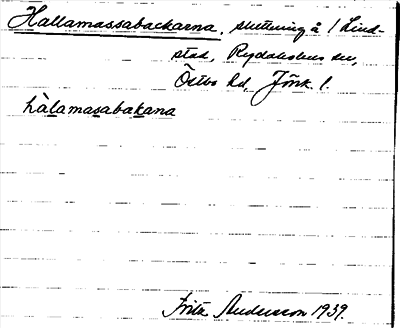 Hallamassabackarna, sluttning å 1 Lind-
stad, Rydaholms sn,
Östbo hd, Jönk. l.
hàlamasabakana
Frits Andersson 1939.